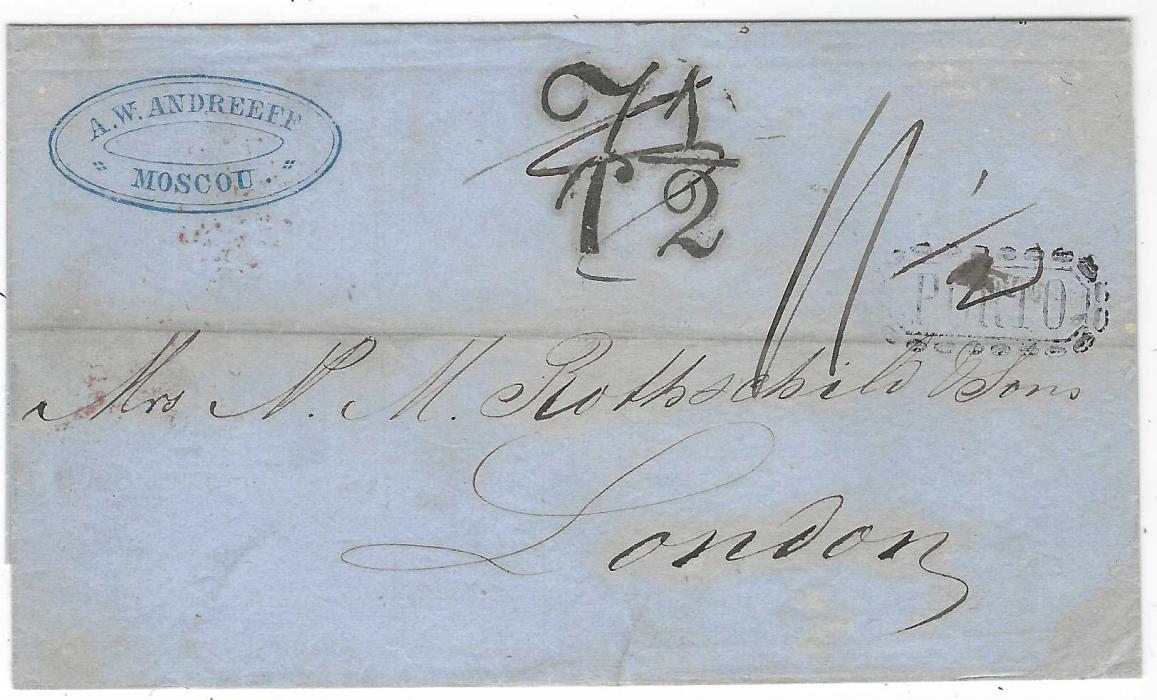 A. W. ANDREEFF
MOSCOU.
1/ 7 1/2
11 1/2
PORTO
Mrs N. M. Rothschild & Sons
London